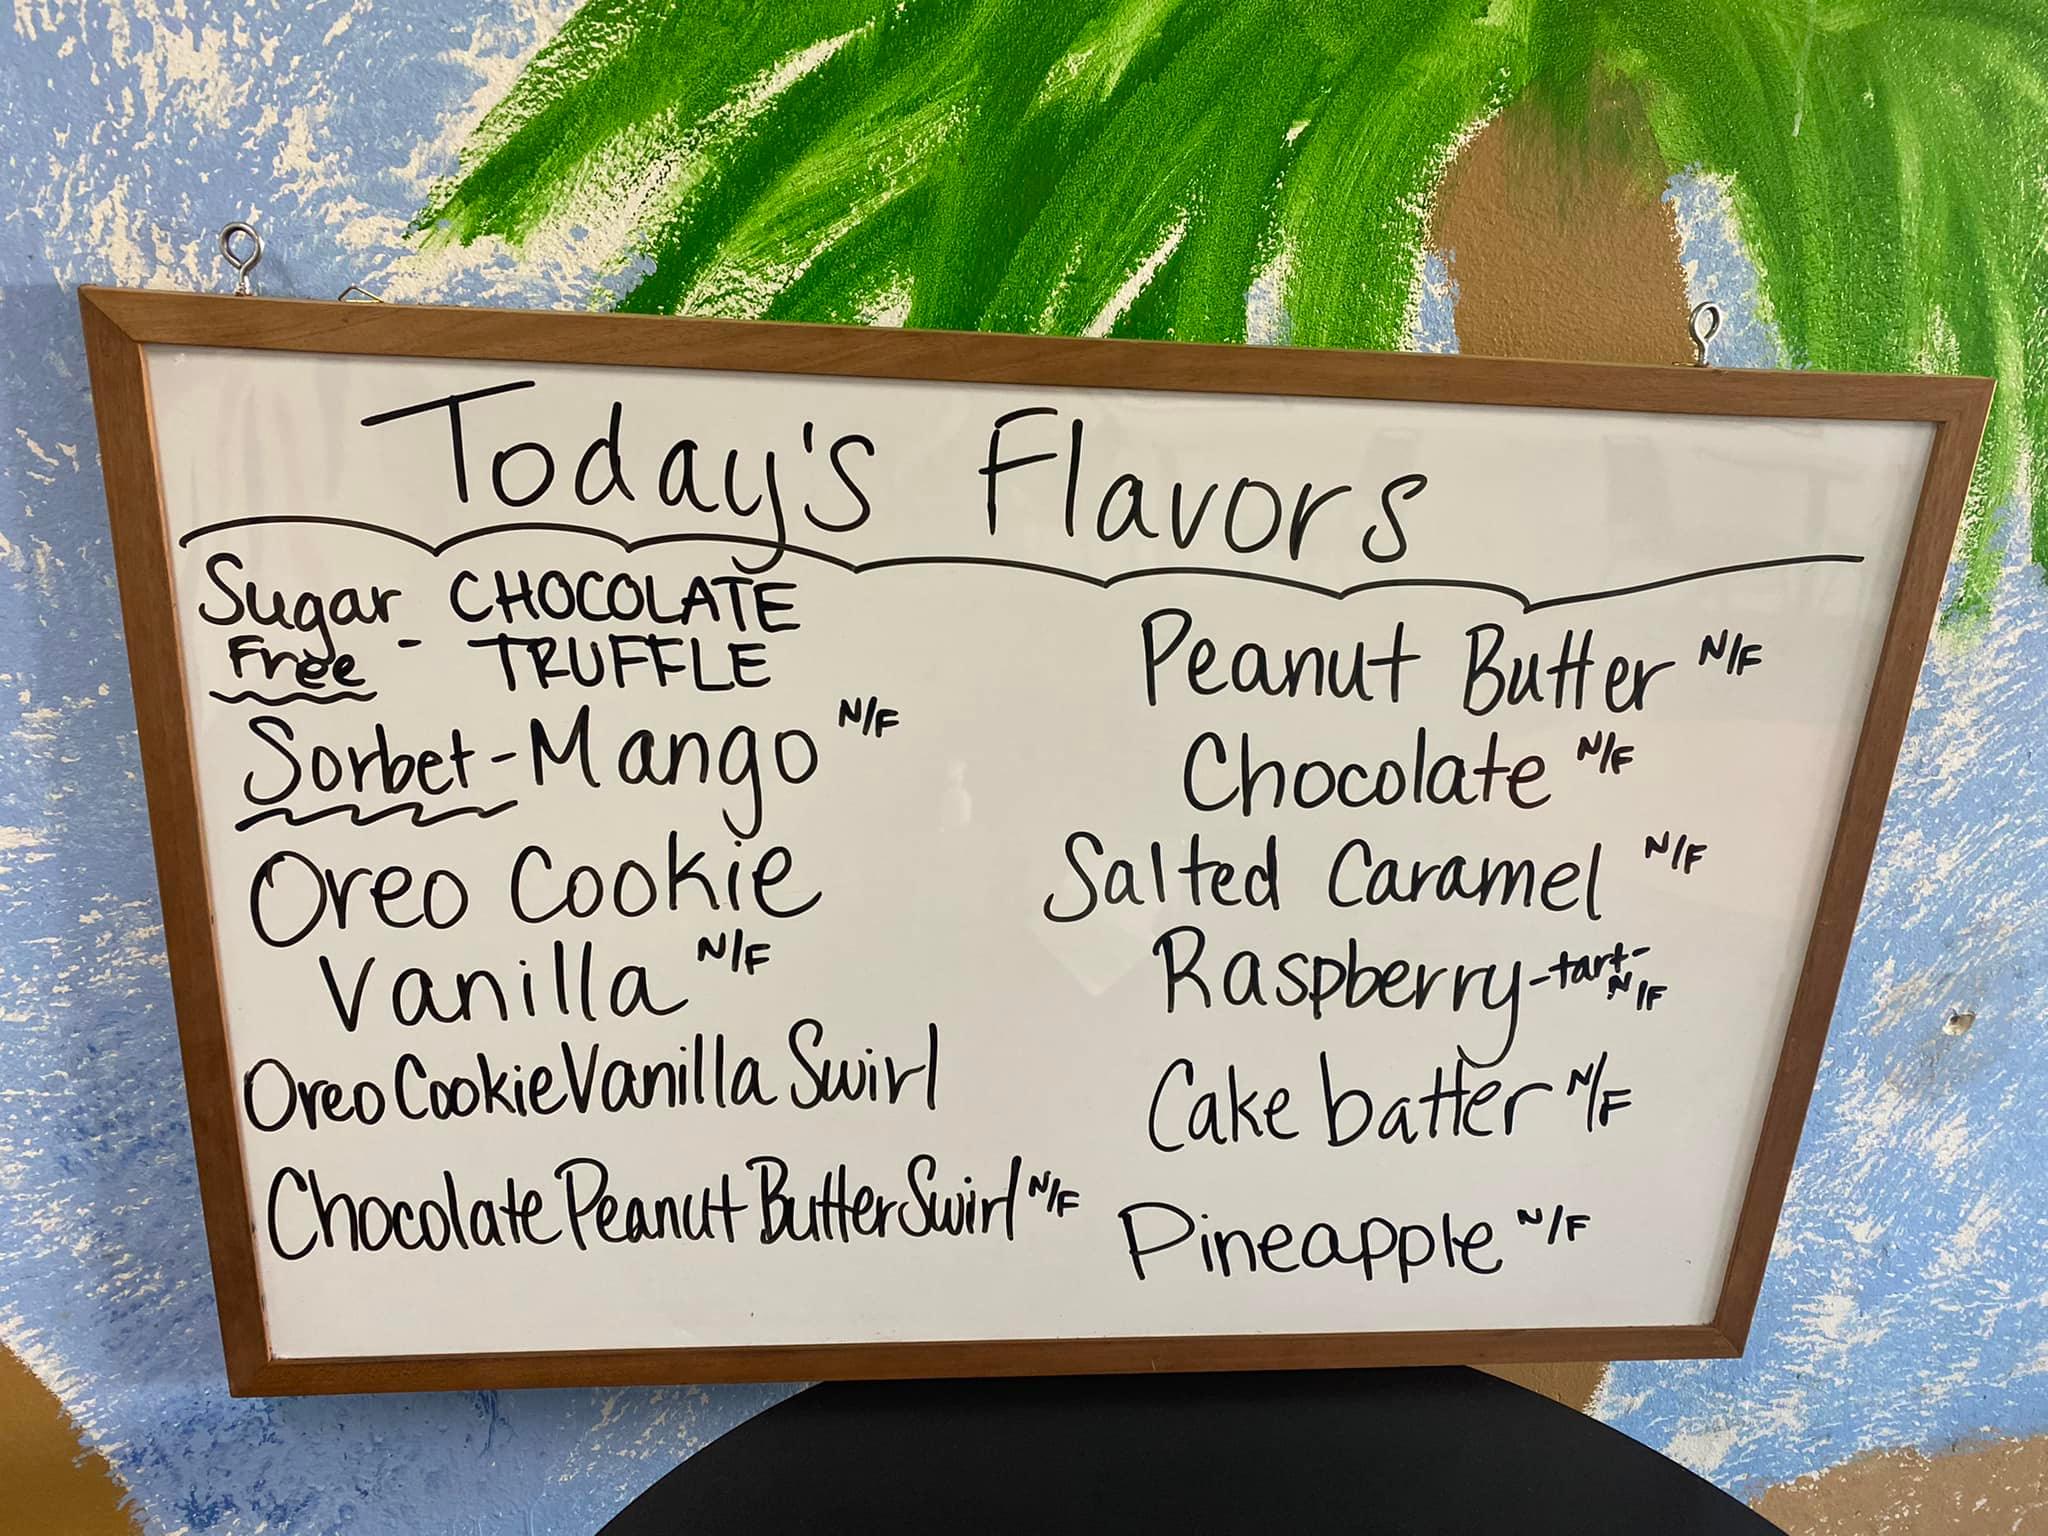 Today's Flavors
Sugar Free - CHOCOLATE TRUFFLE
Sorbet-Mango N/F
Oreo Cookie
Vanilla N/F
Oreo Cookie Vanilla Swirl
Chocolate Peanut Butter Swirl N/F
Peanut Butter N/F
Chocolate N/F
Salted Caramel N/F
Raspberry -tart- N/F
Cake batter N/F
Pineapple N/F